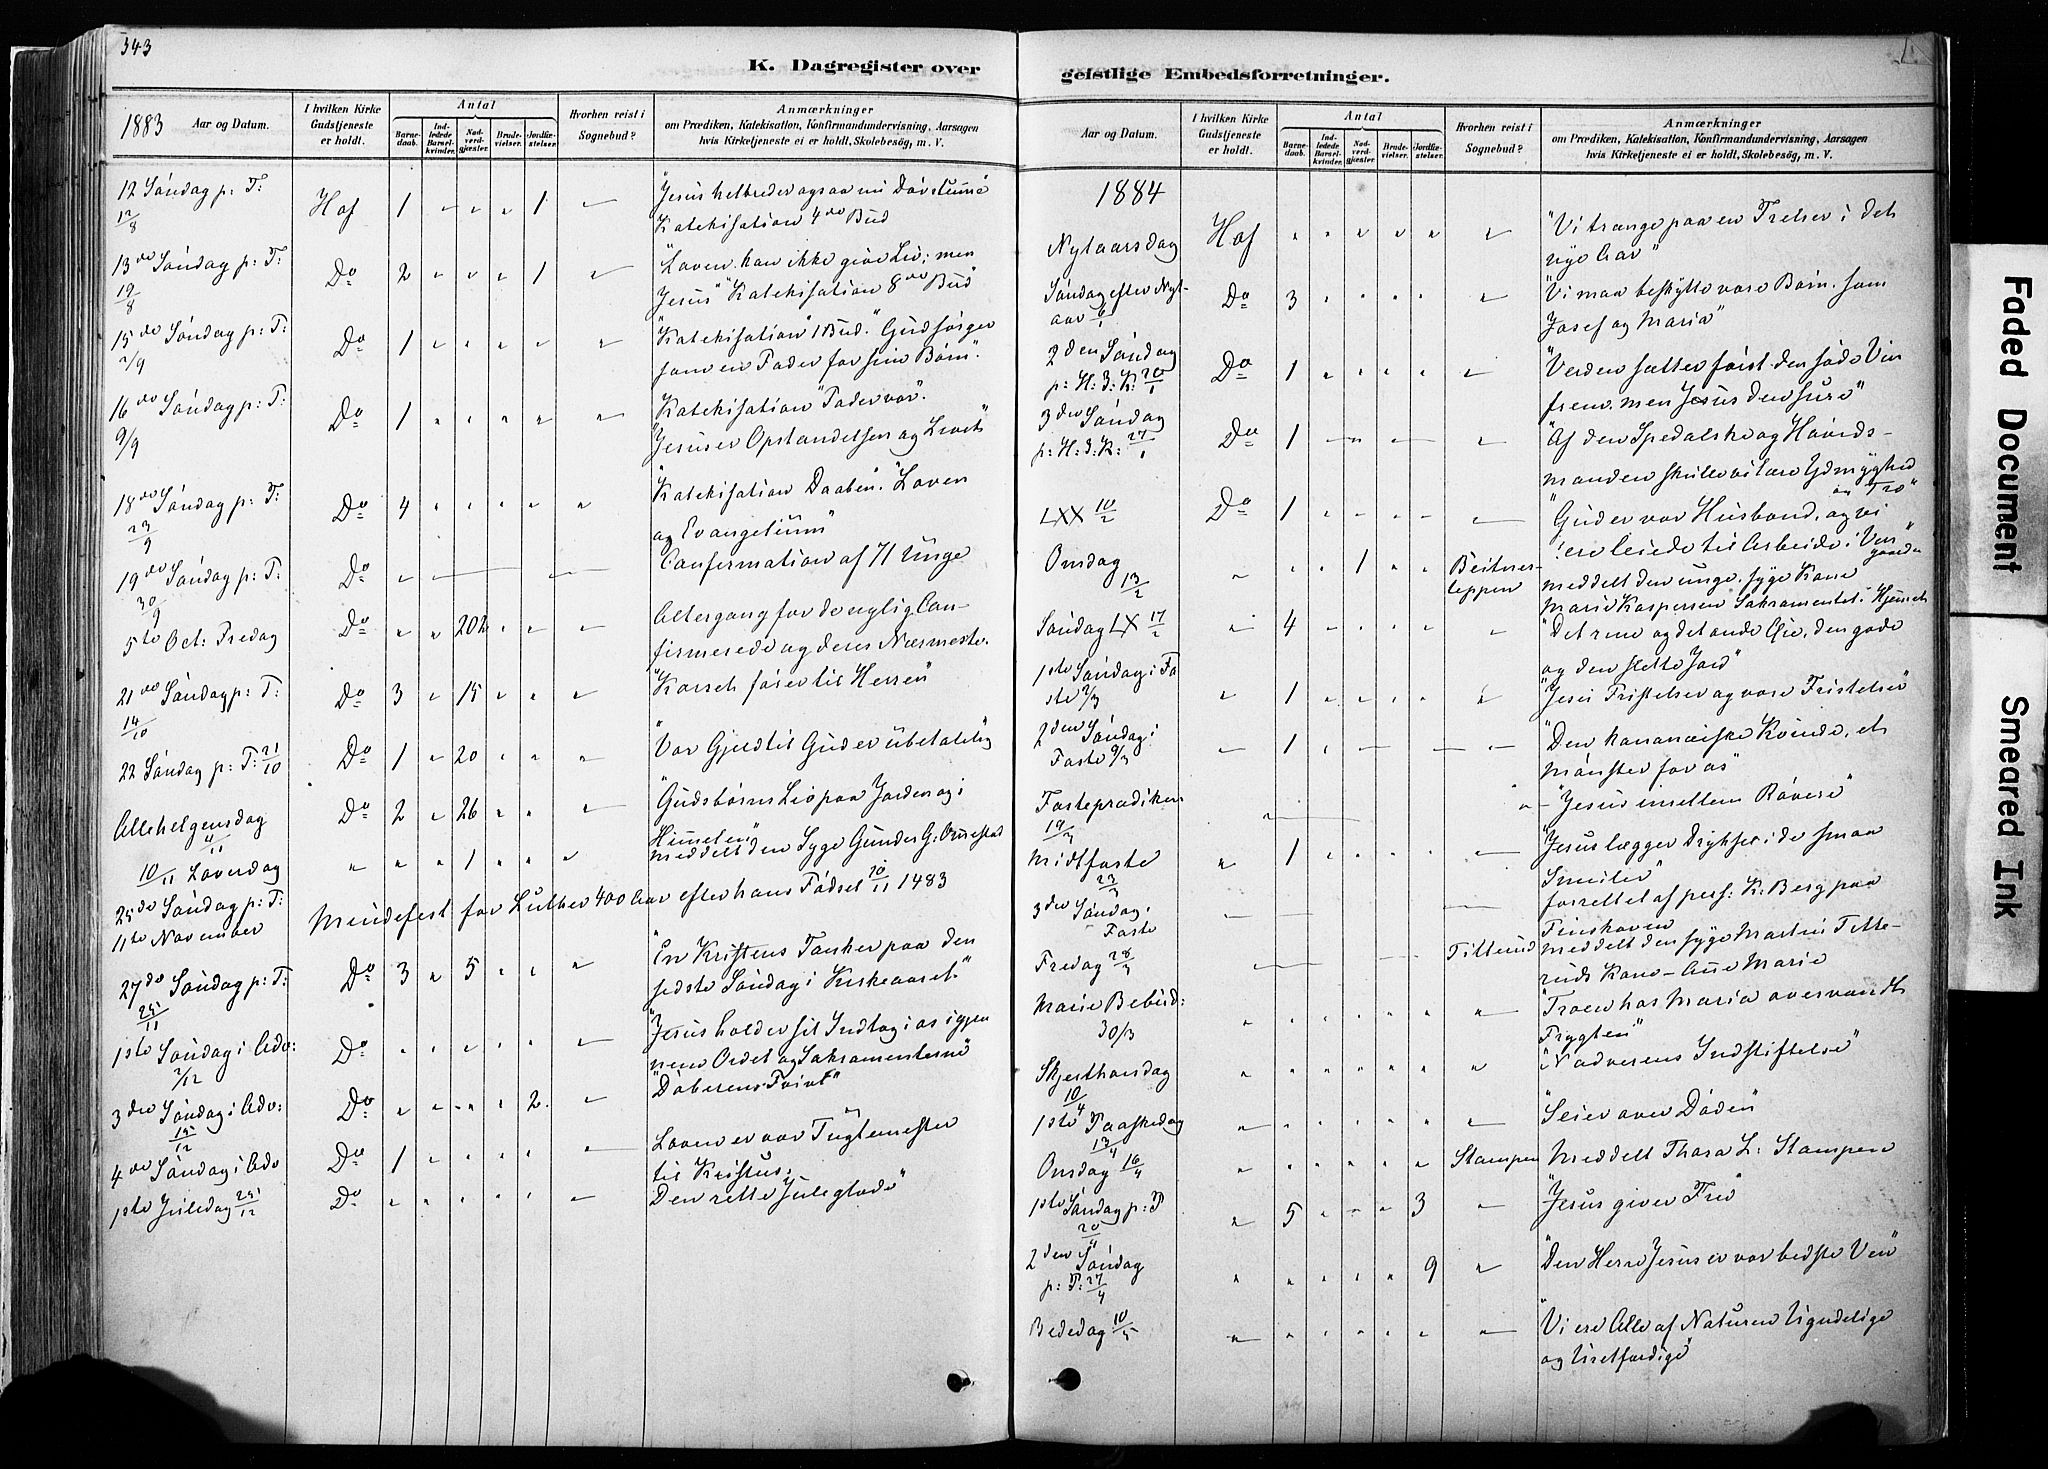 343
K. Dagregister over
1883 Aar og Datum.
I hvilken Kirke Gudstjeneste er holdt.
Antal
Barnedaab.
Indledede Barselkvinder.
Nadverdgjæster.
Brudevielser.
Jordfæstelser.
Hvorhen reist i Sognebud?
Anmærkninger
om Prædiken, Katekisation, Konfirmandundervisning, Aarsagen
hvis Kirketjeneste ei er holdt, Skolebesög, m. V.
12 Söndag p: T: 12/8 Hof 1 " " " 1 "
"Jesus helbreder ogsaa nu Dövstumme"
Katekisation 4de Bud
13de Söndag p: T: 19/8 Do 2 " " " 1 "
"Loven kan ikke give Liv; men
Jesus" Katekisation 8de Bud
15de Söndag p: T: 2/9 Do 1 " " " " "
Katekisation 1 Bud. "Gud sörger
som en Fader for sine Börn".
16de Söndag p: T: 9/9 Do 1 " " " " "
Katekisation Fadervor.
"Jesus er Opstandelsen og Livet"
18de Söndag p: T: 23/9 Do 4 " " " " "
Katekisation Daaben. "Loven
og Evangelium"
19de Söndag p: T: 30/9 Do "
Confirmation af 71 Unge
5te Oct: Fredag Do " " 202 " " "
Altergang for de nylig Con-
firmerede og deres Nærmeste.
21de Söndag p: T: 14/10 Do 3 " 15 " " "
"Korset förer til Herren"
22 Söndag p: T: 21/10 Do 1 " 20 " " "
"Vor Gjeld til Gud er ubetalelig"
Allehelgensdag 4/11 Do 2 " 26 " " "
"Gudsbörns Liv paa Jorden og i
Himmelen"
10/11 Löverdag " " " 1 " " "
meddelt den Syge Gunder G: Ornestad
25de Söndag p: T: 11te November
Mindefest for Luther 400 Aar efter hans Födsel 10/11 1483
27de Söndag p: T: 25/11 Do 3 " 5 " " "
"En Kristens Tanker paa den
sidste Söndag i Kirkeaaret."
1ste Söndag i Adv: 2/12 Do " " " " " "
"Jesus holder sit Indtog i os igjen
nem Ordet og Sakramenterne"
3den Söndag i Adv: 15/12 Do " " " " 2. "
"Döberens Tvivl"
4de Söndag i Adv Do 1 " " " " "
Loven er vor Tugtemester
til Kristus.
1ste Juledag 25/12 Do " " " " " "
"Den rette Juleglæde"
geistlige Embedsforretninger.
Aar og Datum.
I hvilken Kirke Gudstjeneste er holdt.
Antal
Barnedaab.
Indledede Barselkvinder.
Nadverdgjæster.
Brudevielser.
Jordfæstelser.
Hvorhen reist i Sognebud?
Anmærkninger
om Prædiken, Katekisation, Konfirmandundervisning, Aarsagen
hvis Kirketjeneste ei er holdt, Skolebesög, m. V.
1884
Nytaarsdag Hof " " " " " "
"Vi trænge paa en Frelser i det
nye Aar"
Söndag efter Nyt-
aar 6/1 Do 3 " " " " "
"Vi maa beskytte vore Börn som
Josef og Maria"
2den Söndag
p: H: 3: K: 20/1 Do 1 " " " " "
"Verden sætter först den söde Vin
frem, men Jesus den sure"
3den Söndag
p: H: 3: K: 27/1 Do 1 "
"Af den Spedalske og Höveds-
manden skulle vi lære Ydmyghed
og Tro"
LXX 10/2 Do 1 " " " " "
"Gud er vor Husbond, og vi
ere leiede til Arbeide i Vin
gaarden"
Onsdag 13/2 " " " 1 " "
meddelt den unge, syge Kone
Marie Kaspersen Sakramentet i Hjemmet
Söndag LX 17/2 " 4 " " " " "
"Det rene og det onde Öie, den gode
og den slette Jord"
1ste Söndag i Fa
ste 2/3 " 1 " " " " "
"Jesu Fristelser og vore Fristelser"
2den Söndag i
Faste 9/3 " 1 " "
"Den kananæiske Kvinde, et
Mönster for os"
Fasteprædiken 19/3 "
"Jesus imellem Rövere"
Midtfaste 23/3 " 1 " " " " "
"Jesus lægger Dighser i de smaa
Smuler"
3den Söndag i
Faste
forrettet af pers: K: Berg paa
Finskoven
Fredag 28/3 Tittmed
meddelt den syge Martin Titte-
ruds Kone - Ane Marie
Marie Bebud: 30/3 " " " " " " "
"Troen hos Maria overvandt
Frygten"
Skjærthorsdag 10/4 " " " " " " "
"Nadverens Indstiftelse"
1ste Paaskedag 13/4 " " " " " " "
"Seier over Döden"
Onsdag 16/4 " " " " " " Stampen
Meddelt Thora L: Stampen
1ste Söndag p: P 20/4 " 5 " " " 3 "
"Jesus giver Fred"
2den Söndag
p: P: 27/4 " " " " " 9 "
"Den Herre Jesus er vor bedste Ven"
Bededag 10/5 " " " " " " "
"Vi ere Alle af Naturen Ugudelige
og Uretfærdige"
Faded Document
Smeared Ink